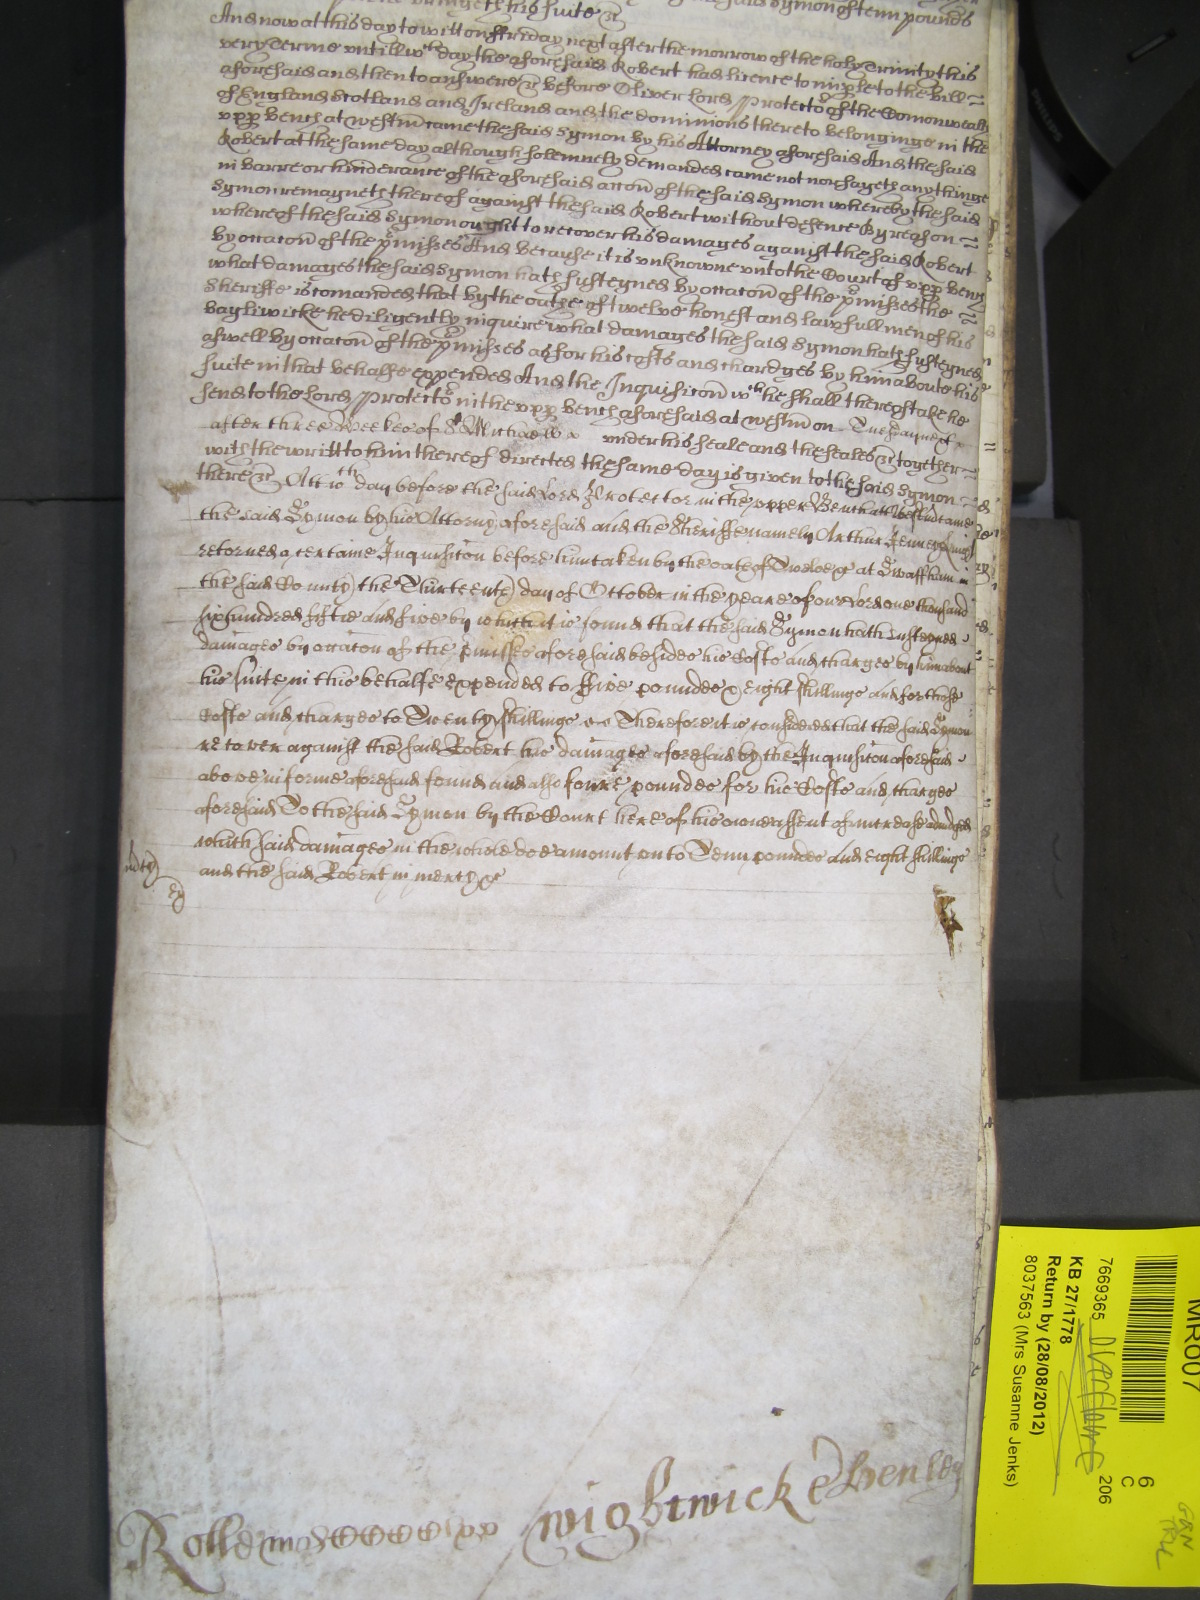 bringeth his suite &c
said Symon of tenn pounds
And now at this day to witt on ffriday next after the morrow of the holy Trinity this
very Terme untill wch day the aforesaid Robert had licence to imple to the bill
aforesaid and then to answere &c before Oliver Lord Protector of the Comonwealth
of England Scotland and Ireland and the dominions thereto belonginge in the
upp Bench at Westm came the said Symon by his Attorney aforesaid And the said
Robert at the same day although solemnely demanded came not nor sayeth anythinge
in barre or hinderance of the aforesaid accon of the said Symon whereby the said
Symon remayneth thereof against the said Robert without defence By reason
whereof the said Symon ought to recover his damages against the said Robert
by occacon of the pmisses And because it is unknowne unto the Court of upp Bench
what damages the said Symon hath susteyned by occacon of the pmisses the
Sheriffe is comanded that by the oathe of twelve honest and lawfull men of his
bayliwicke he diligently inquire what damages the said Symon hath susteyned
aswell by occacon of the pmisses as for his costs and chardges by him aboute his
suite in that behalfe expended And the Inquisicon wch he shall thereof take he
send to the Lord Protector in the upp Bench aforesaid at Westm on Tuesday next
after three weekes of St Michael under his seale and the seales &c together
with the writt to him thereof directed the same day is given to the said Symon
there &c Att wch day before the said Lord Protector in the upper Bench att Westm came
the said Symon by his Attorny aforesaid and the Sheriffe namely Arthur Jenney
retorned a certaine Inquisicon before him taken by the oath of Twelve &c at Swaffham in
the said County the Thirteenth day of October in the yeare of our Lord one thousand
six hundred fiftie and five by which it is found that the said Symon hath susteyned
damages by occacon of the pmisses aforesaid besides his Costs and charges by him about
his suite in this behalfe expended to ffive poundes & eight shillings and for those
Costs and charges to Twenty shillings Therefore it is considered that the said Symon
recover against the said Robert his damages aforesaid by the Inquisicon aforesaid
above in forme aforesaid found and also foure poundes for his Costs and charges
aforesaid To the said Symon by the Court here of his owne assent of increase adiudged
which said damages in the whole doe amount unto Tenn poundes and eight shillings
and the said Robert in mercy &c
Rolle
Wightwicke & Henley
MR007
7669365
KB 27/1778
Return by (28/08/2012)
8037563 (Mrs Susanne Jenks)
6
C
206